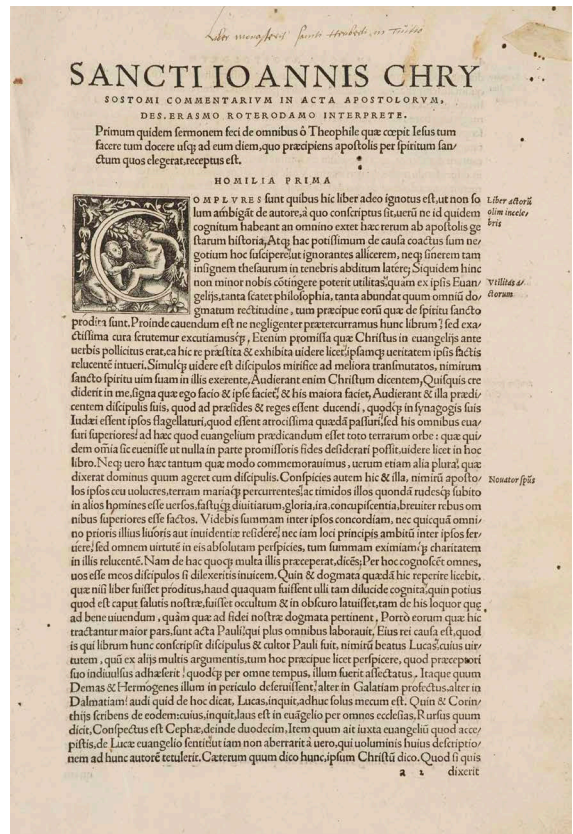 Liber monasterii Sancti
SANCTI IOANNIS CHRY
SOSTOMI COMMENTARIVM IN ACTA APOSTOLORVM,
DES. ERASMO ROTERODAMO INTERPRETE.
Primum quidem sermonem feci de omnibus ô Theophile quæ cœpit Iesus tum
facere tum docere usq; ad eum diem, quo præcipiens apostolis per spiritum san/
ctum quos elegerat, receptus est.
HOMILIA PRIMA
COMPLVRES sunt quibus hic liber adeo ignotus est, ut non so
lum ambigãt de autore, à quo conscriptus sit, uerũ ne id quidem
cognitum habeant an omnino extet hæc rerum ab apostolis ge
starum historia, Atq; hac potissimum de causa coactus sum ne/
gotium hoc suscipere, ut ignorantes allicerem, neq; sinerem tam
insignem thesaurum in tenebris abditum latere; Siquidem hinc
non minor nobis cõtingere poterit utilitas, quàm ex ipsis Euan/
gelijs, tanta scatet philosophia, tanta abundat quum omniũ do/
gmatum rectitudine, tum præcipue eorũ quæ de spiritu sancto
prodita sunt. Proinde cauendum est ne negligenter prætercurramus hunc librum, sed exa/
ctissima cura scrutemur excutiamusq;, Etenim promissa quæ Christus in euangelijs ante
uerbis pollicitus erat, ea hic re præstita & exhibita uidere licet, ipsamq; ueritatem ipsis factis
relucentẽ intueri. Simulq; uidere est discipulos mirifice ad meliora transmutatos, nimirum
sancto spiritu uim suam in illis exerente, Audierant enim Christum dicentem, Quisquis cre
diderit in me, signa quæ ego facio & ipse faciet, & his maiora faciet, Audierant & illa prædi/
centem discipulis suis, quod ad præsides & reges essent ducendi, quodq; in synagogis suis
Iudæi essent ipsos flagellaturi, quod essent atrocissima quædã passuri, sed his omnibus eua/
suri superiores: ad hæc quod euangelium prædicandum esset toto terrarum orbe: quæ qui/
dem om̃ia sic euenisse ut nulla in parte promissoris fides desiderari possit, uidere licet in hoc
libro. Neq; uero hæc tantum quæ modo commemorauimus, uerum etiam alia plura, quæ
dixerat dominus quum ageret cum discipulis. Conspicies autem hic & illa, nimirũ aposto/
los ipsos ceu uolucres, terram mariaq; percurrentes, ac timidos illos quondã rudesq; subito
in alios homines esse uersos, fastuq; diuitiarum, gloria, ira, concupiscentia, breuiter rebus om
nibus superiores esse factos. Videbis summam inter ipsos concordiam, nec quicquã omni/
no prioris illius liuoris aut inuidentiæ residere, nec iam loci principis ambitũ inter ipsos fer/
uere, sed omnem uirtutẽ in eis absolutam perspicies, tum summam eximiamq; charitatem
in illis relucentẽ. Nam de hac quoq; multa illis præceperat, dicẽs, Per hoc cognoscẽt omnes,
uos esse meos discipulos si dilexeritis inuicem. Quin & dogmata quædã hic reperire licebit,
quæ nisi liber fuisset proditus, haud quaquam fuissent ulli tam dilucide cognita, quin potius
quod est caput salutis nostræ, fuisset occultum & in obscuro latuisset, tam de his loquor quæ
ad bene uiuendum, quàm quæ ad fidei nostræ dogmata pertinent, Porrò eorum quæ hic
tractantur maior pars, sunt acta Pauli, qui plus omnibus laborauit, Eius rei causa est, quod
is qui librum hunc conscripsit discipulus & cultor Pauli fuit, nimirũ beatus Lucas, cuius uir/
tutem, quũ ex alijs multis argumentis, tum hoc præcipue licet perspicere, quod præceptori
suo indiuulsus adhæserit, quodq; per omne tempus, illum fuerit assectatus. Itaque quum
Demas & Hermogenes illum in periculo deseruissent, alter in Galatiam profectus, alter in
Dalmatiam, audi quid de hoc dicat, Lucas, inquit, adhuc solus mecum est. Quin & Corin/
thijs scribens de eodem: cuius, inquit, laus est in euãgelio per omnes ecclesias, Rursus quum
dicit, Conspectus est Cephæ, deinde duodecim, Item quum ait iuxta euangeliũ quod acce/
pistis, de Lucæ euangelio sentit, ut iam non aberrarit à uero, qui uoluminis huius descriptio/
nem ad hunc autorẽ tetulerit. Cæterum quum dico hunc, ipsum Christũ dico. Quod si quis
a 2 dixerit
Liber actorũ
olim incele/
bris
Vtilitas a/
ctorum
Nouator spũs